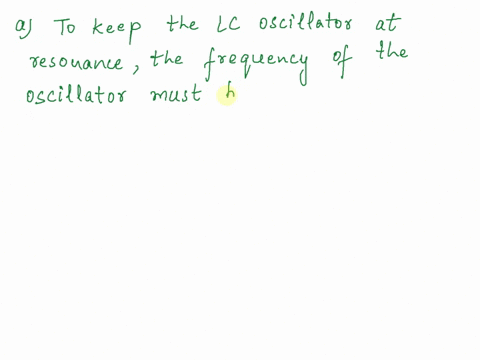 a) To keep the LC oscillator at
resonance, the frequency of the
oscillator must